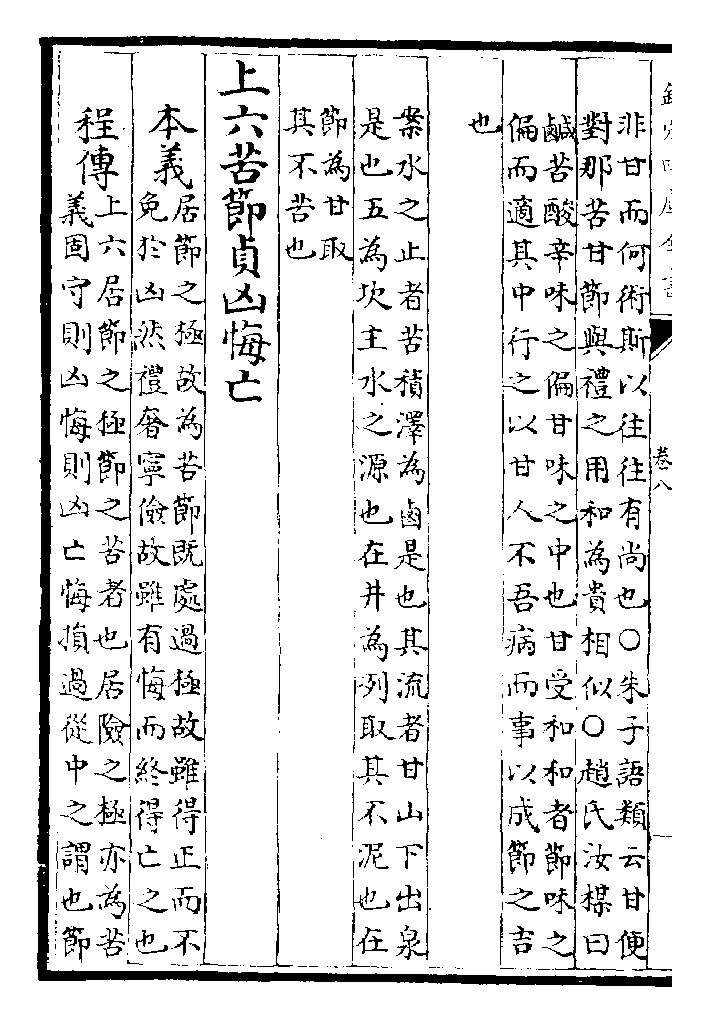 非甘而何術斯以往往有尚也○朱子語類云甘便
對那苦甘節與禮之用和為貴相似○趙氏汝楳曰
鹹苦酸辛味之偏甘味之中也甘受和和者節味之
偏而適其中行之以甘人不吾病而事以成節之吉
也
案水之止者苦積澤為鹵是也其流者甘山下出泉
是也五為坎主水之源也在井為冽取其不泥也在
節為甘取
其不苦也
上六苦節貞凶悔亡
本義居節之極故為苦節既處過極故雖得正而不
免於凶然禮奢寧儉故雖有悔而終得亡之也
程傳上六居節之極節之苦者也居險之極亦為苦
義固守則凶悔則凶亡悔損過從中之謂也節
卷八